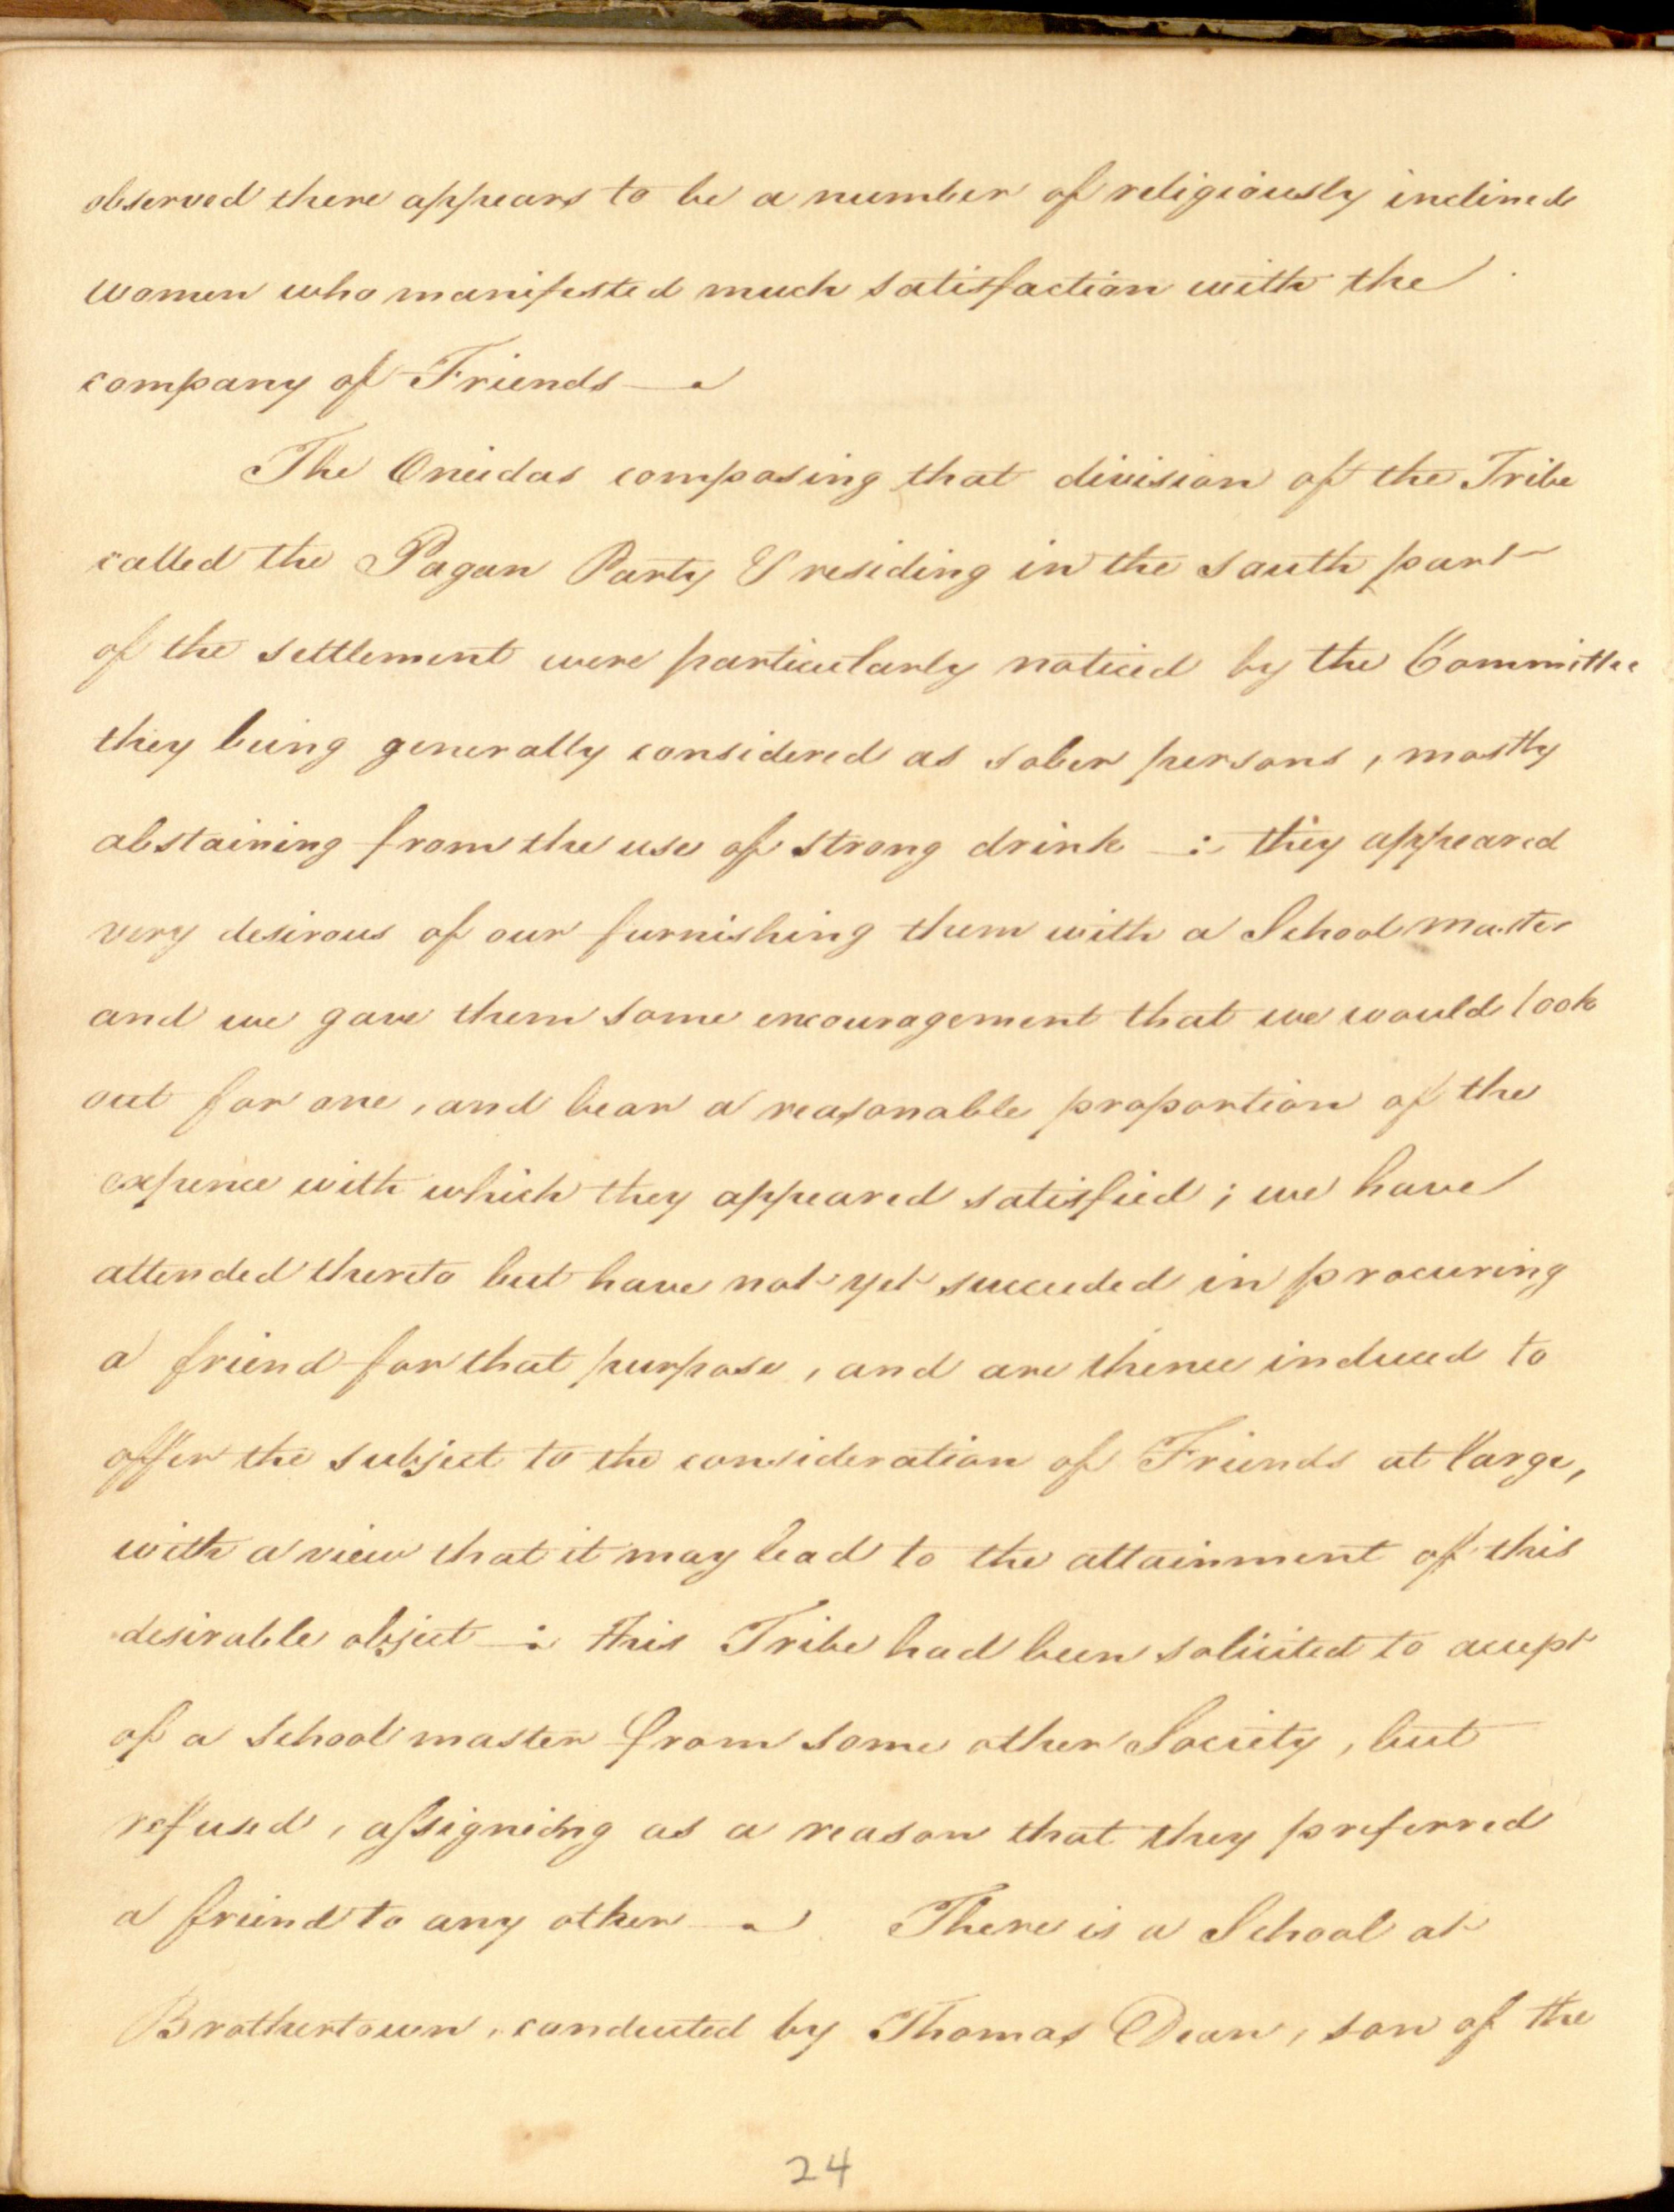 observed there appears to be a number of religiously inclined
women who manifested much satisfaction with the
company of Friends —
The Oneidas composing that division of the Tribe
called the Pagan Party & residing in the south part
of the settlement were particularly noticed by the Committee
they being generally considered as sober persons, mostly
abstaining from the use of strong drink —: they appeared
very desirous of our furnishing them with a School master
and we gave them some encouragement that we would look
out for one, and bear a reasonable proportion of the
expence with which they appeared satisfied; we have
attended thereto but have not yet succeeded in procuring
a friend for that purpose, and are thence induced to
offer the subject to the consideration of Friends at large,
with a view that it may lead to the attainment of this
desirable object —: this Tribe had been solicited to accept
of a School master from some other Society, but
refused, assigning as a reason that they preferred
a friend to any other — There is a School at
Brothertown, conducted by Thomas Dean, son of the
24